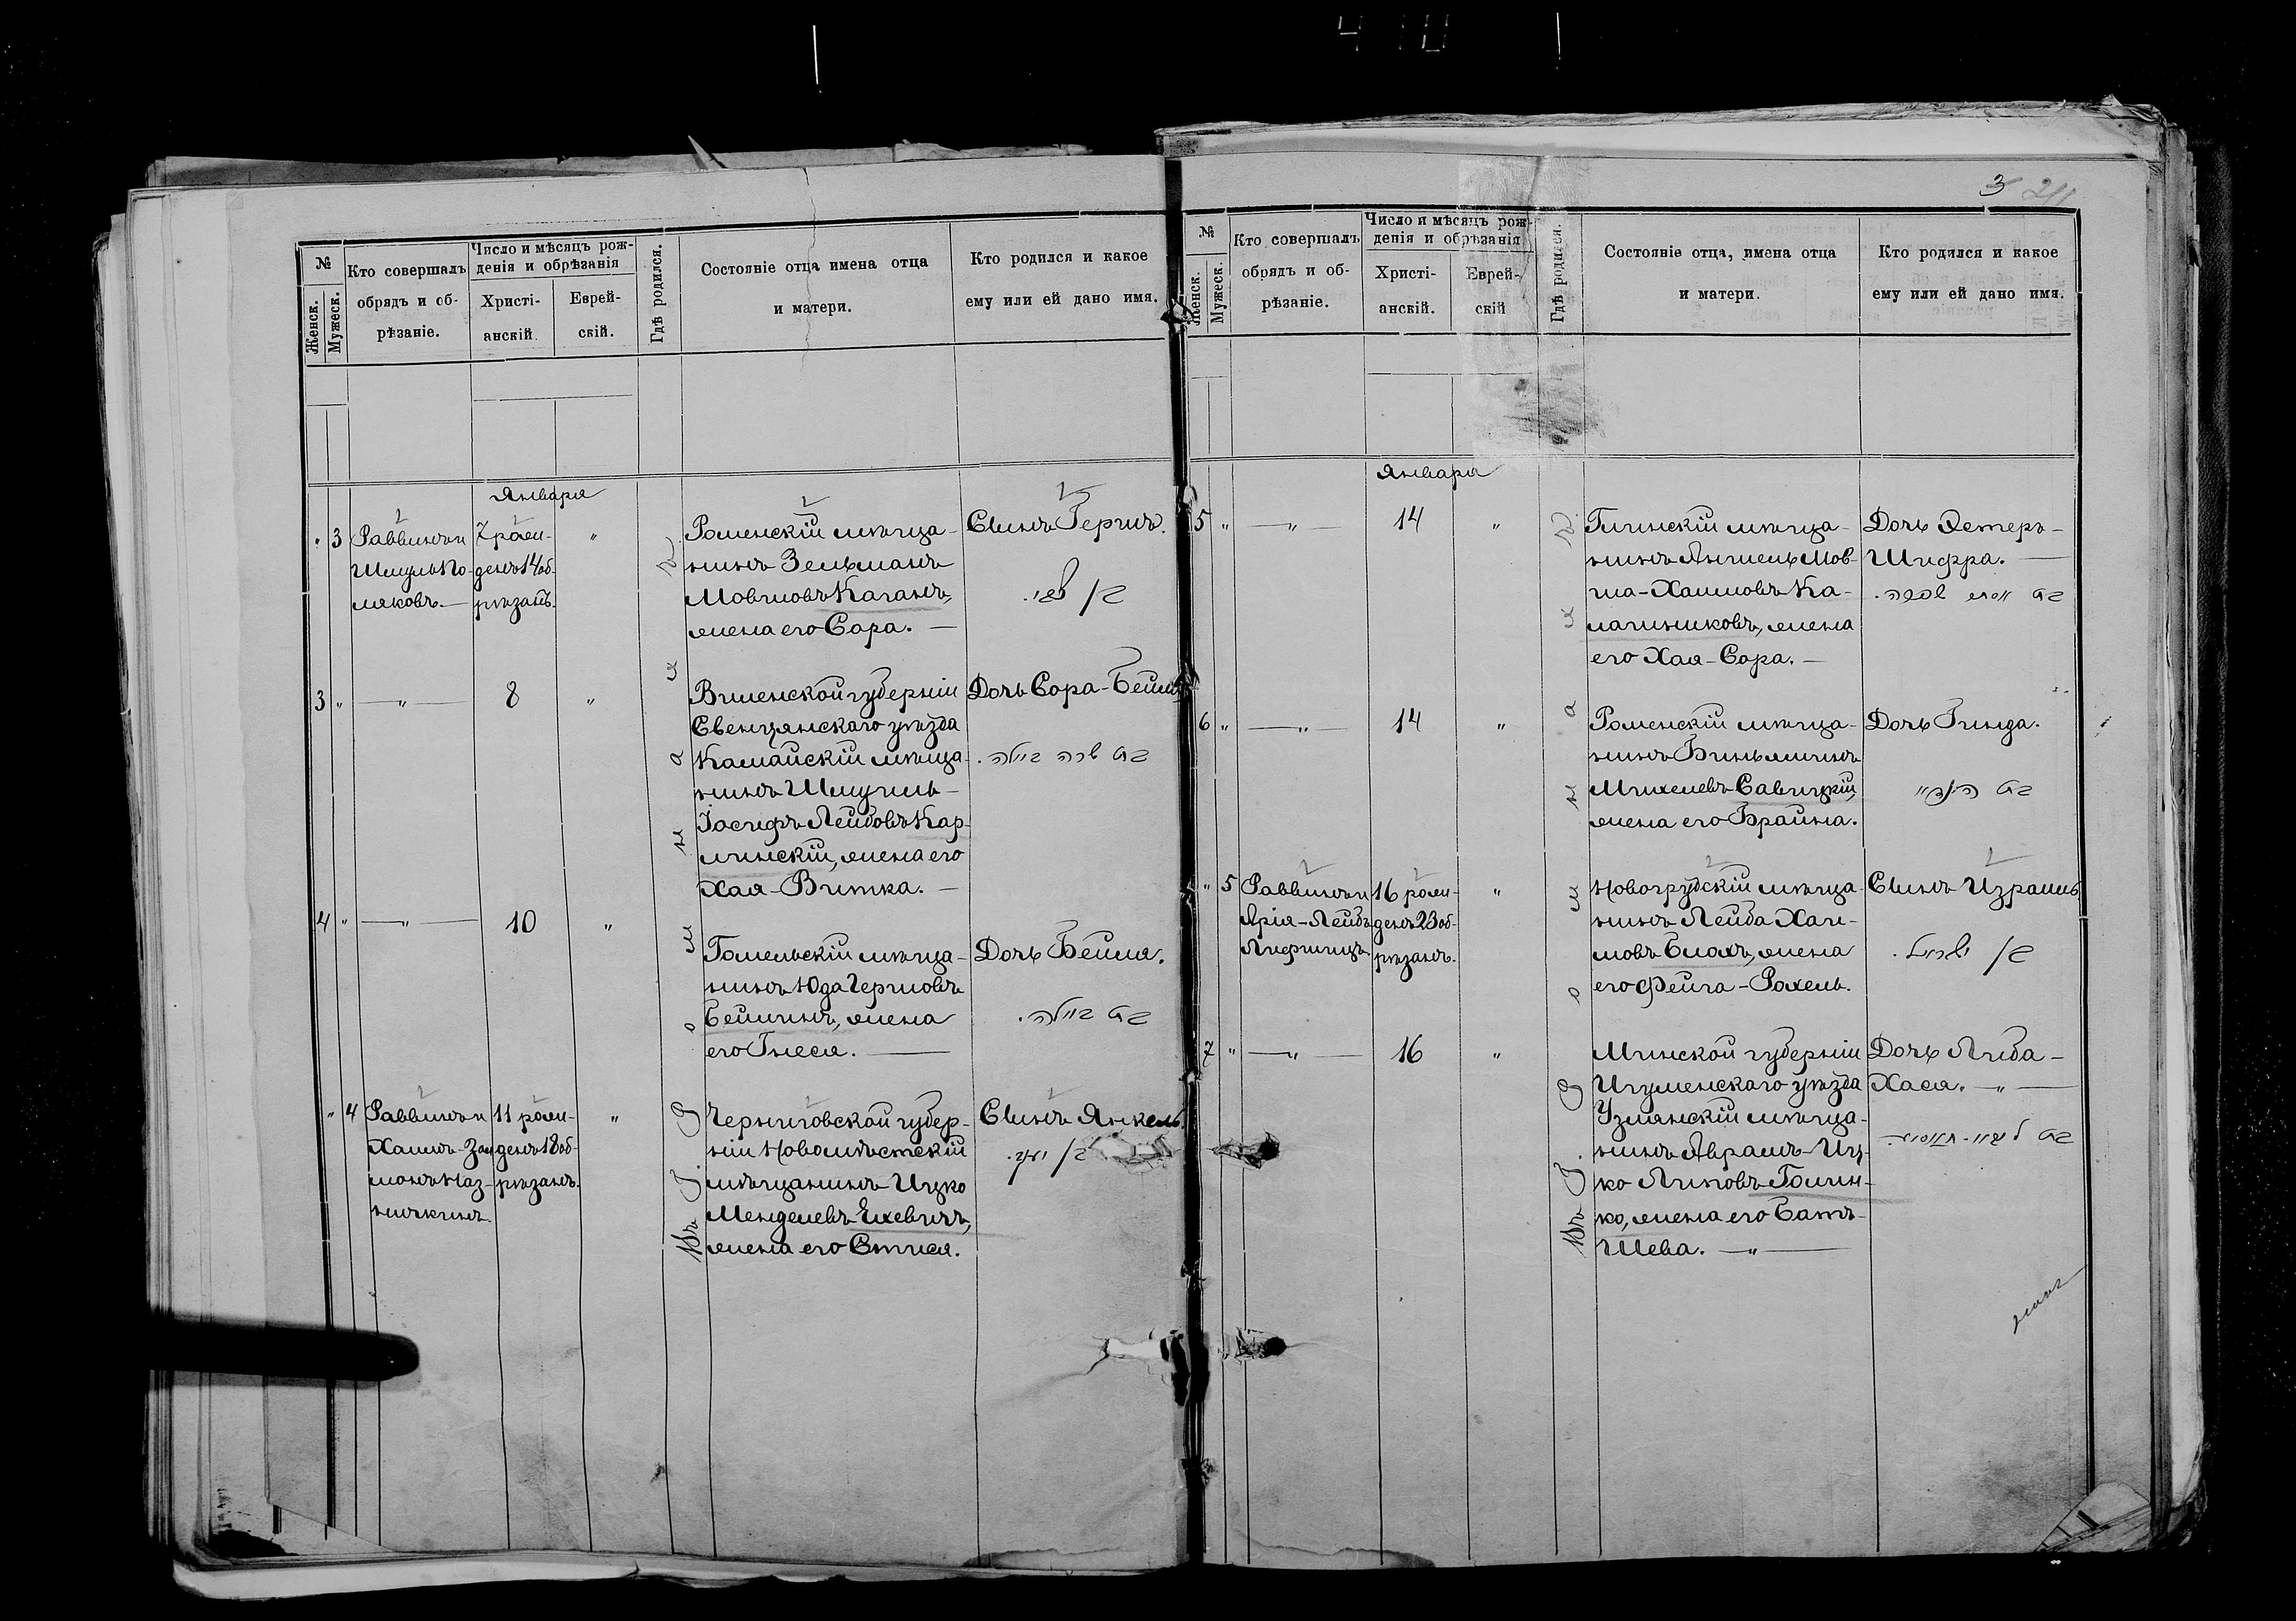 №
Женск.
Мужеск.
Кто совершалъ
обрядъ и об-
рѣзаніе.
Число и мѣсяцъ рож-
денія и обрѣзанія
Христі-
анскій.
Еврей-
скій.
Гдѣ родился.
Состояніе отца имена отца
и матери.
Кто родился и какое
ему или ей дано имя.
Января
" 3
Раввинъ и
Шмуль По-
ляковъ. —
7 рож-
денъ 14 об-
рѣзанъ.
"
Роменскій мѣща-
нинъ Зельманъ
Мовшовъ Каганъ,
жена его Сора. —
Сынъ Гершъ.
בן צבי.
3 " — " —
8
"
Виленской губерніи
Свенцянскаго уѣзда
Камайскій мѣща-
нинъ Шмуиль-
Іосифъ Лейбовъ Кар-
линскій, жена его
Хая-Витка. —
Дочь Сора-Бейля
בת שרה ביילה.
4 " — " —
10
"
Гомельскій мѣща-
нинъ Юда Гершовъ
Бейлинъ, жена
его Гнеся. —
Дочь Бейля.
בת ביילה.
" 4
Раввинъ и
Хаимъ-Зал
монъ Каз-
ничкинъ.
11 рож-
денъ 18 об-
рѣзанъ.
"
Черниговской губер-
ніи Новомѣстскій
мѣщанинъ Ицко
Менделевъ Ехевичъ,
жена его Стися.
Сынъ Янкель.
בן יעקב.
Въ г. Роменахъ
3 211
№
Женск.
Мужеск.
Кто совершалъ
обрядъ и об-
рѣзаніе.
Число и мѣсяцъ рож-
денія и обрѣзанія
Христі-
анскій.
Еврей-
скій
Гдѣ родился.
Состояніе отца, имена отца
и матери.
Кто родился и какое
ему или ей дано имя.
Января
5 " — " —
14
"
мѣща-
нинъ Яншель Мов-
ша-Хаимовъ Ка-
лашниковъ, жена
его Хая-Сора. —
Дочь Эстеръ-
Шифра. —
בת אסתר שפרה.
6 " — " —
14
"
Роменскій мѣща-
нинъ Биньминъ
Михелевъ Савицкій,
жена его Брайна.
Дочь Гинда.
בת הינדא
" 5
Раввинъ и
Арія-Лейбъ
Лифшицъ.
16 рож-
денъ 23 об-
рѣзанъ.
"
Новогрудскій мѣща-
нинъ Лейба Хаи-
мовъ Блохъ, жена
его Фейга-Рохель.
Сынъ Израиль
בן ישראל.
7 " — " —
16
"
Минской губерніи
Игуменскаго уѣзда
Узлянскій мѣща-
нинъ Аврамъ-Иц-
ко Липовъ Голин-
ко, жена его Батъ-
Шева. — " —
Дочь Либа-
Хася. — " —
בת ליבא